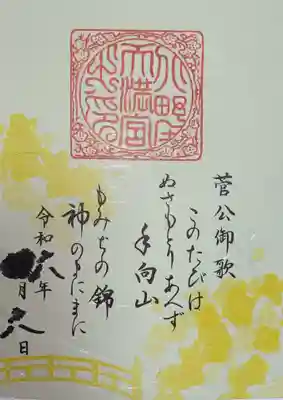 北野
天満宮
菅公御歌
このたびは
ぬさもとりあへず
手向山
もみぢの錦
神のまにまに
令和六年
月八日